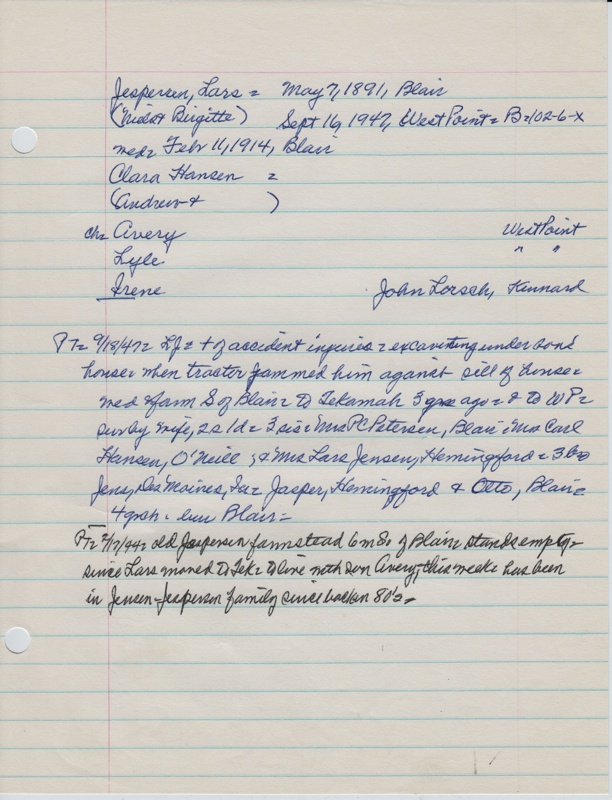 Jespersen, Lars = May 7, 1891, Blair
(Nids & Birgitte) Sept 16, 1947, West Point = B=102-6-X
med= Febr 11, 1914, Blair
Clara Hansen =
(Andrew & )
ch= Avery West Point
Lyle " "
Irene John Lorsch, Kennard
PT= 9/18/47= Lf= + of accident injuries = excavating under son's
house when tractor jammed him against sill of house=
med & farm S of Blair= to Tekamah 3 yrs ago= & to WP=
surv by wife, 2s 1d= 3 sis= Mrs PC Petersen, Blair; Mrs Carl
Hansen, O'Neill; & Mrs Lars Jensen, Hemingford= 3 bros
Jens, Des Moines, Ia= Jasper, Hemingford & Otto, Blair=
4 grch= bur Blair=
PT= 2/17/44= old Jespersen farmstead 6 m So of Blair stands empty=
since Lars moved to Tek= to live with son Avery, this week= has been
in Jensen-Jesperson family since back in 80's=